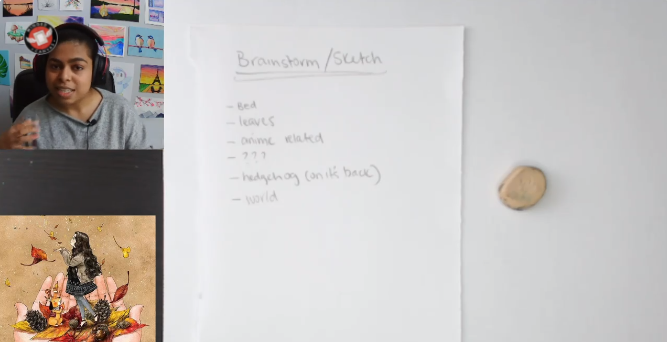 Brainstorm/Sketch
- Bed
- leaves
- anime related
- ???
- hedgehog (on it's back)
- world